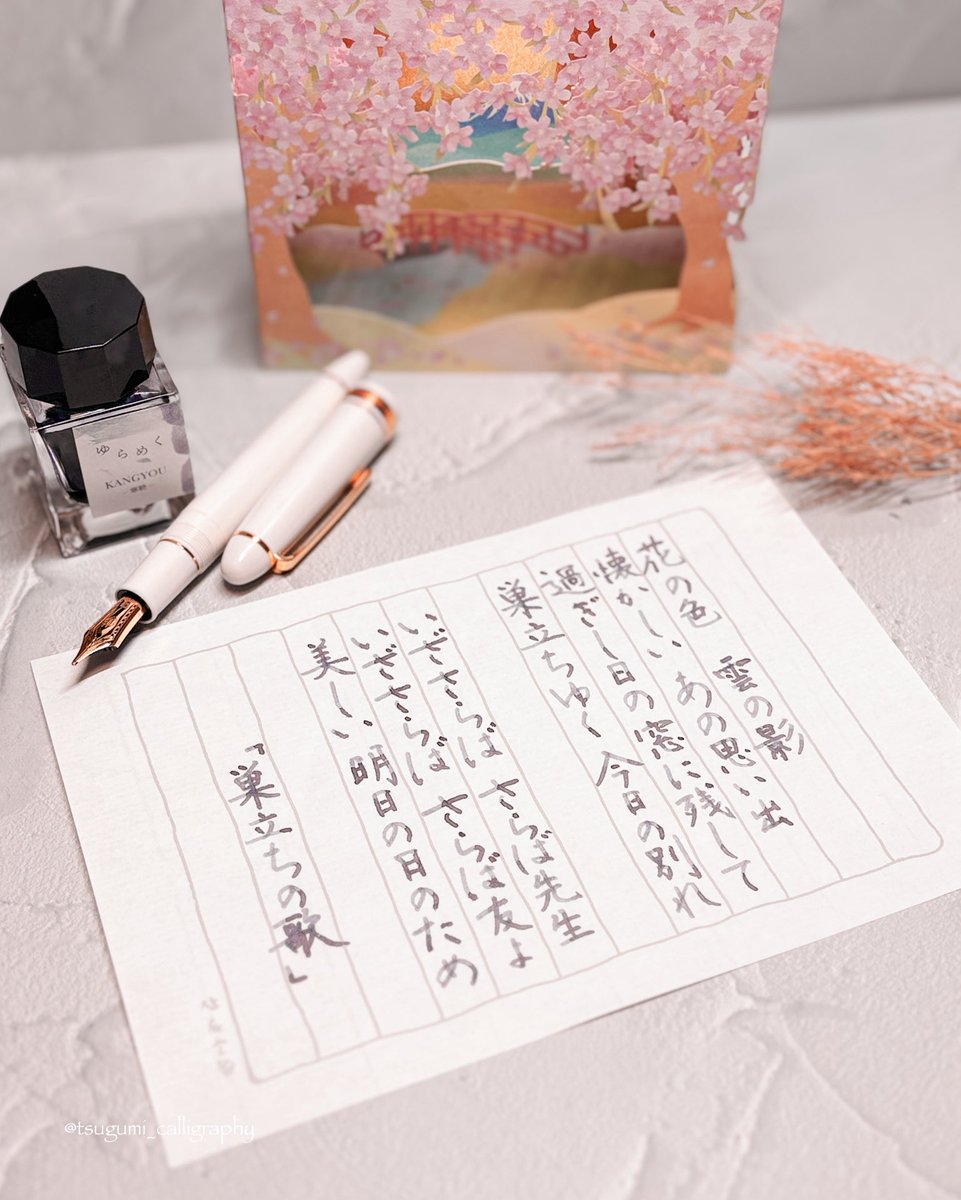 花の色 雲の影
懐かしい あの思い出
過ぎし日の窓に残して
巣立ちゆく 今日の別れ
いざさらば さらば先生
いざさらば さらば友よ
美しい 明日の日のため
「巣立ちの歌」
ゆらめく
KANGYOU
@tsugumi_calligraphy